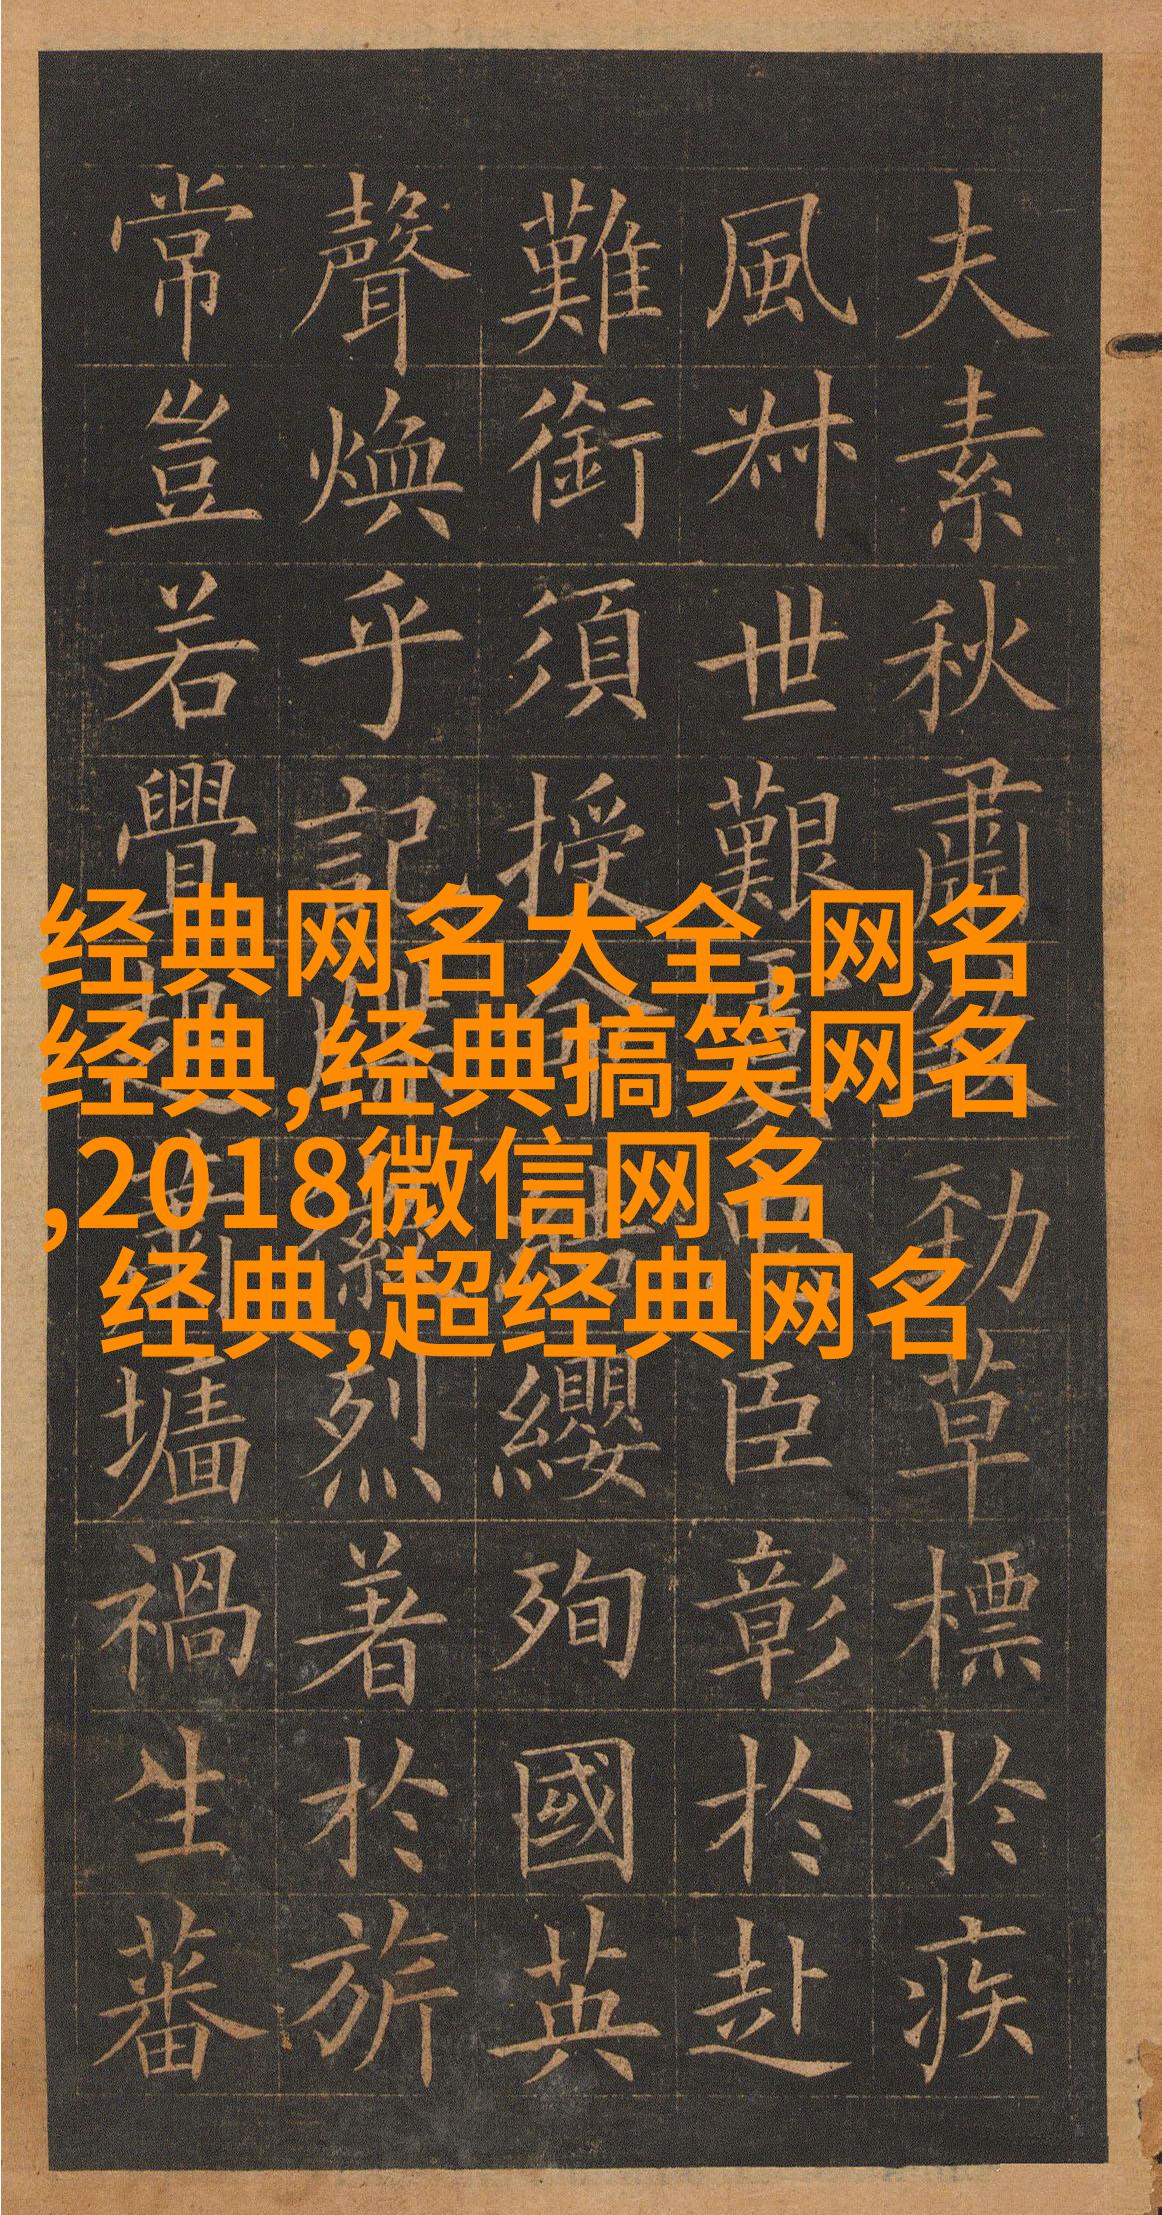 夫素秋肅勁草標於疾
風叔世艱虞臣彰於赴
難銜須授命纓殉國英
聲煥乎記牒烈著於旂
常豈若釁起墻禍生蕃
经典网名大全,网名
经典,经典搞笑网名
,2018微信网名
经典,超经典网名